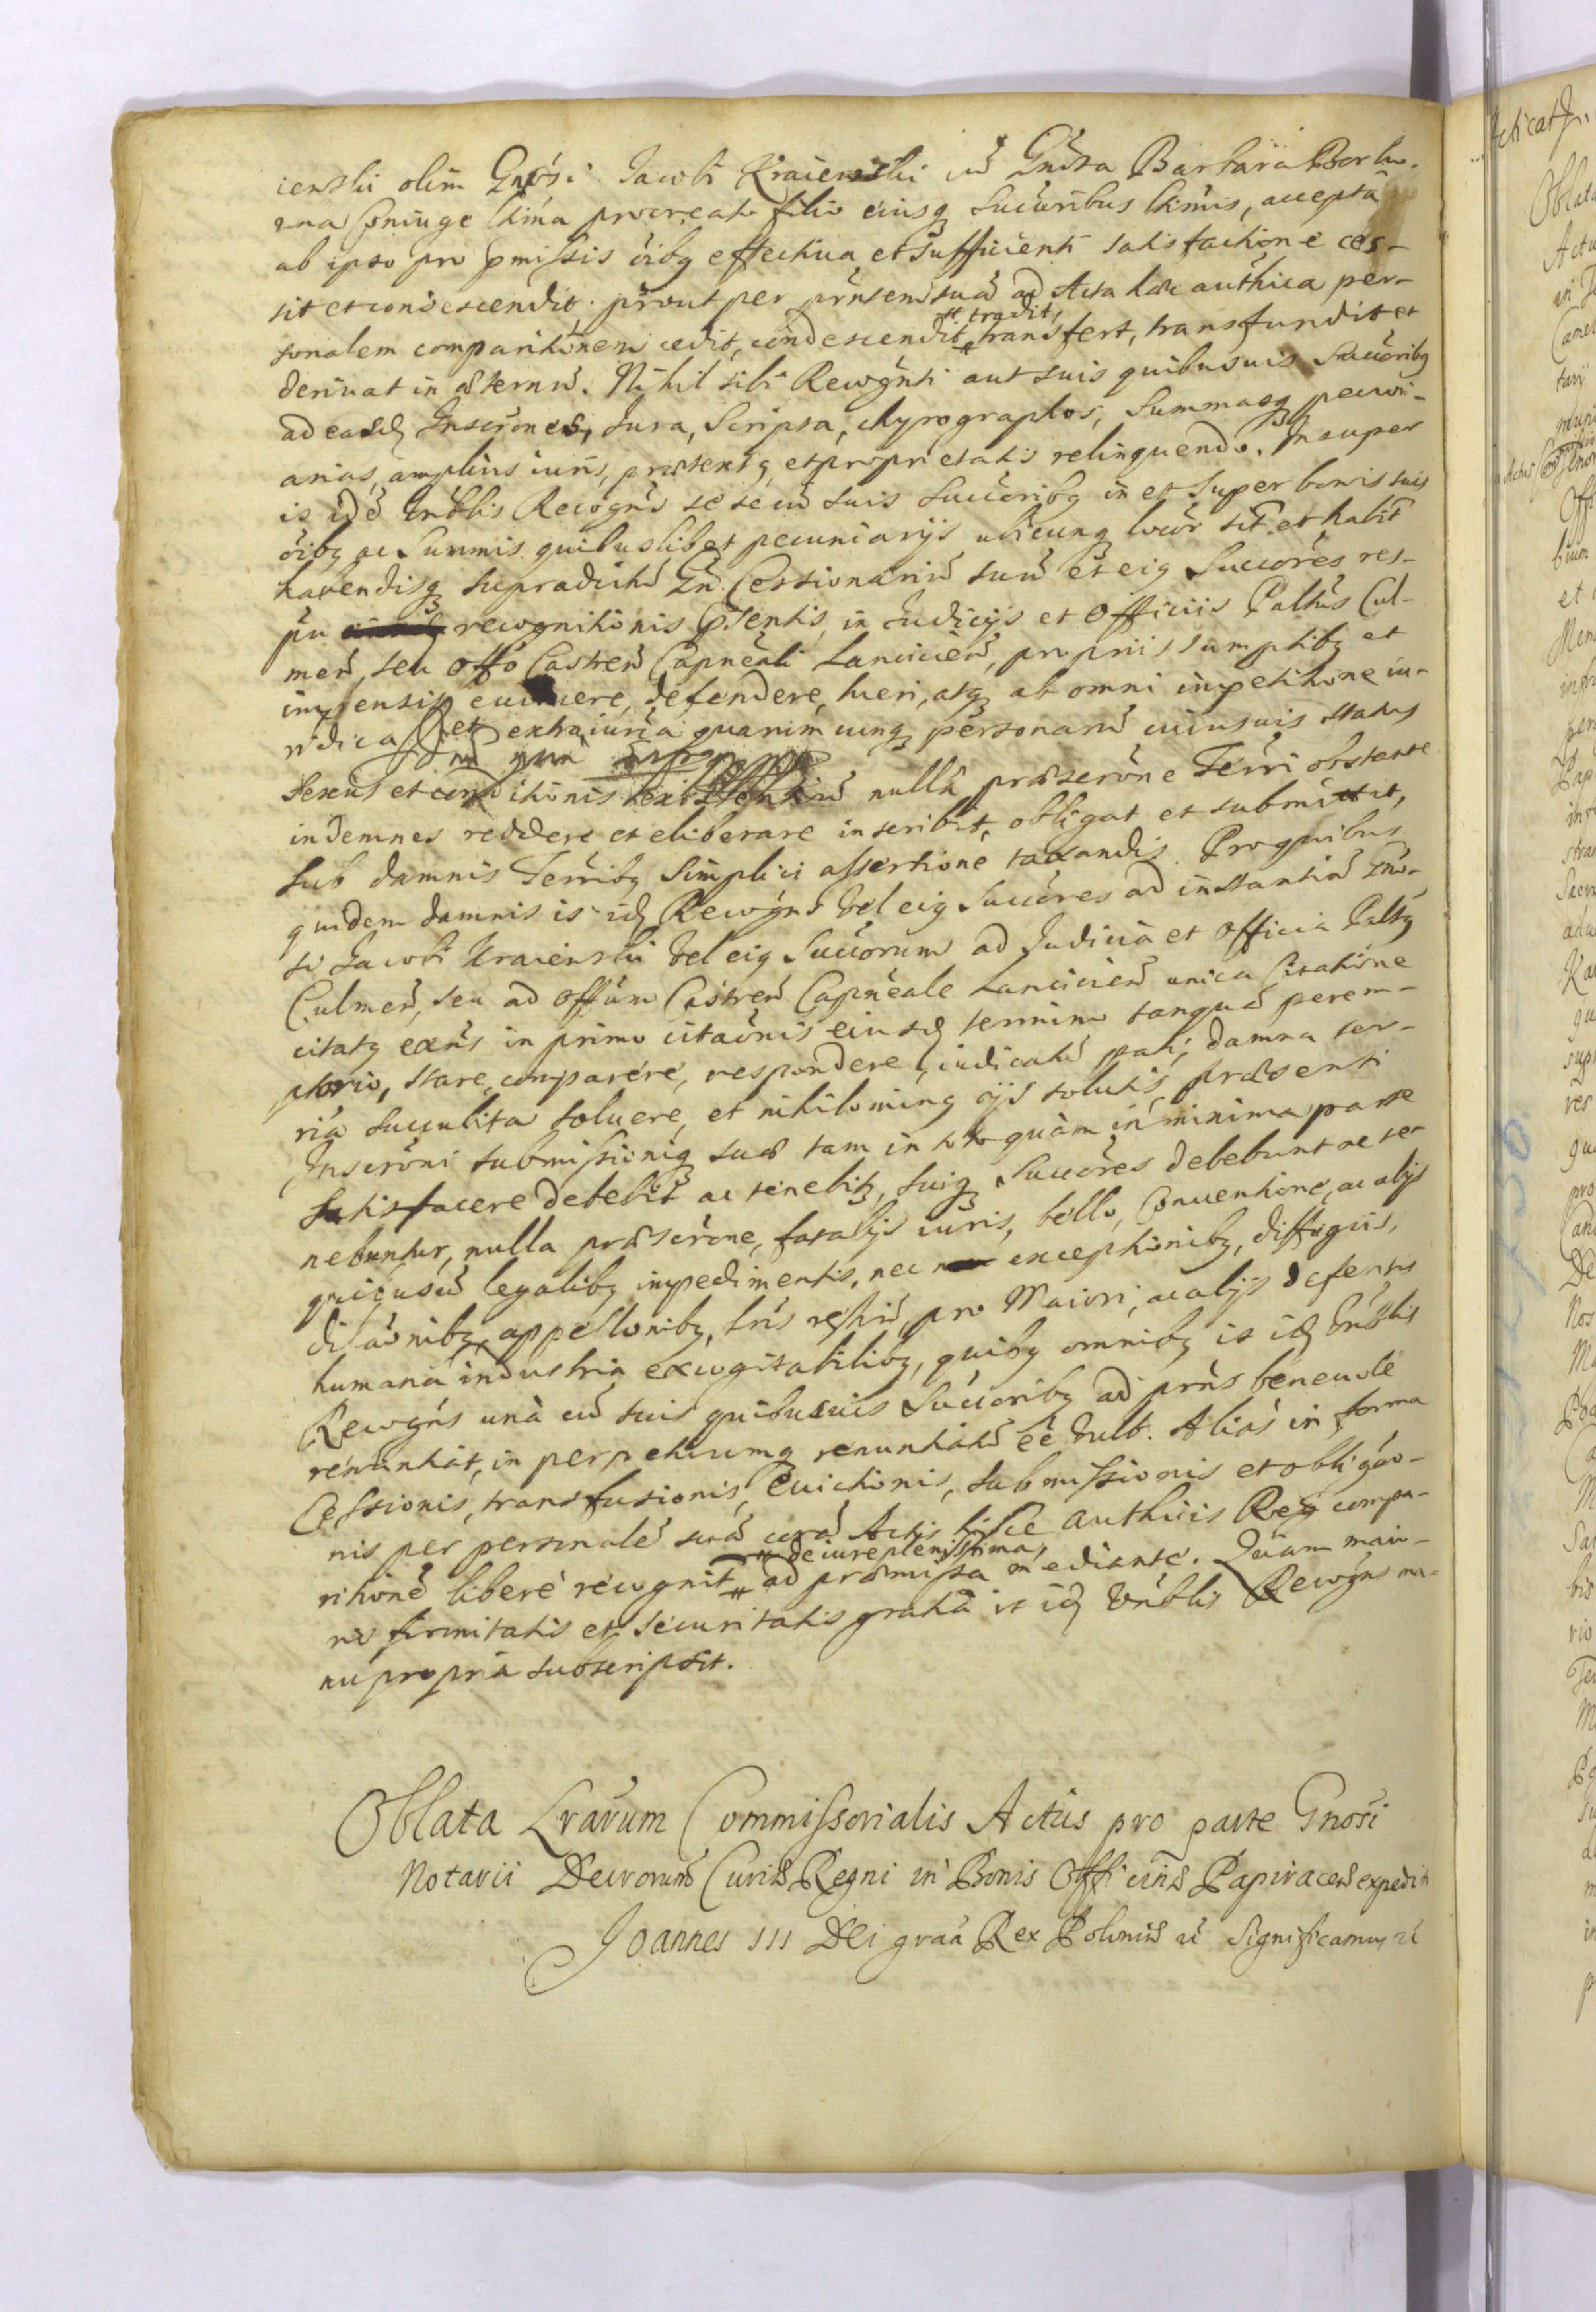 ienski olim Gnosi Jacobi Kraienski cũ Gnosa Barbara Borko-
wna Coniuge ltima procreato filio eiusq Successoribus ltimis, accepta
ab ipso pro pmissis oibq effectiua et sufficienti satisfactione ces-
sit et condescendit, prout per pñsentẽ suã ad Acta hæc authtica per-
sonalem comparitionem cedit, condescendit, tradit, transfert, transfundit et
deriuat in æternũ. Nihil sibi Recognti aut suis quibusuis Succoribq
ad easdẽ Inscriñes, Jura, Scripta, chyrographos, Summasq pecuni-
arias, amplius iuris, prætextq et proprietatis relinquendo. Insuper
is idẽ Gnblis Recogns se secũ suis Succoribq in et super bonis suis
oibq ac Summis quibuslibet pecuniarijs ubicunq locor sit et habit
habendisq supradictũ Gñ. Cessionariũ suũ et eiq Succores res-
pu recognitionis psentis, in Judicijs et Officiis Paltus Cul-
meñ, seu Offo Castreñ Capneali Lanciciẽn, proprijs sumptibq et
impensis euincere, defendere, tueri, atq ab omni impetitione iu-
ridica et extraiuria quarumcunq personarũ cuiusuis status
Sexus et conditionis existentiũ nulla præscrõne Terri obstante
indemnes reddere et eliberare inscribit, obligat et submittit,
sub damnis Terribq simplici assertione taxandis. Pro quibus
quidem damnis is idẽ Recogns vel eiq Succores ad instantiã Gno-
si Jacobi Kraienski vel eiq Succorum ad Judicia et Officia Paltq
Culmeñ, seu ad Offum Castreñ Capneale Lanciciẽn unica Citatione
citatq exñs in primo citaõnis eiusdẽ termino tanquã perem-
ptorio, stare, comparere, respondere, iudicatũ pati, damna ter-
ria succubita soluere, et nihilominq ijs solutis, præsenti
Inscrõni submissioniq suæ tam in toto quàm in minima parte
satisfacere debebit ac tenebitq, suiq Succores debebunt ac te-
nebuntur, nulla præscrõne, fatalijs iuris, bello, Conuentione, ac alijs
quibusuis legalibq impedimentis, nec exceptionibq, diffugiis,
dilaõnibq, appellonibq, pro Maiori, ac alijs defensis
humana industria excogitabilibq, quibq omnibq is idẽ Gnblis
Recogns unà cũ suis quibusuis Succoribq ad prñs beneuole
renunciat, in perpetuumq renunciatũ eẽ vult. Alias in forma
Cessionis, transfusionis, Euictionis, submissionis et obligao-
nis per personalẽ suã corã Actis hisce authticis Reg compa-
ritionẽ liberè recognit de iure plenissima, ad præmissa mediante. Quam maio-
ris firmitatis et securitatis gratia is idẽ Gnblis Recogns ma-
nu propria subscripsit.
Oblata Lrarum Commissorialis Actus pro parte Gnosi
Notarii Decrorum Curiæ Regni in Bonis Officinæ Papiraceæ expediti
Joannes III Dei graa Rex Poloniæ &c Significamus &c